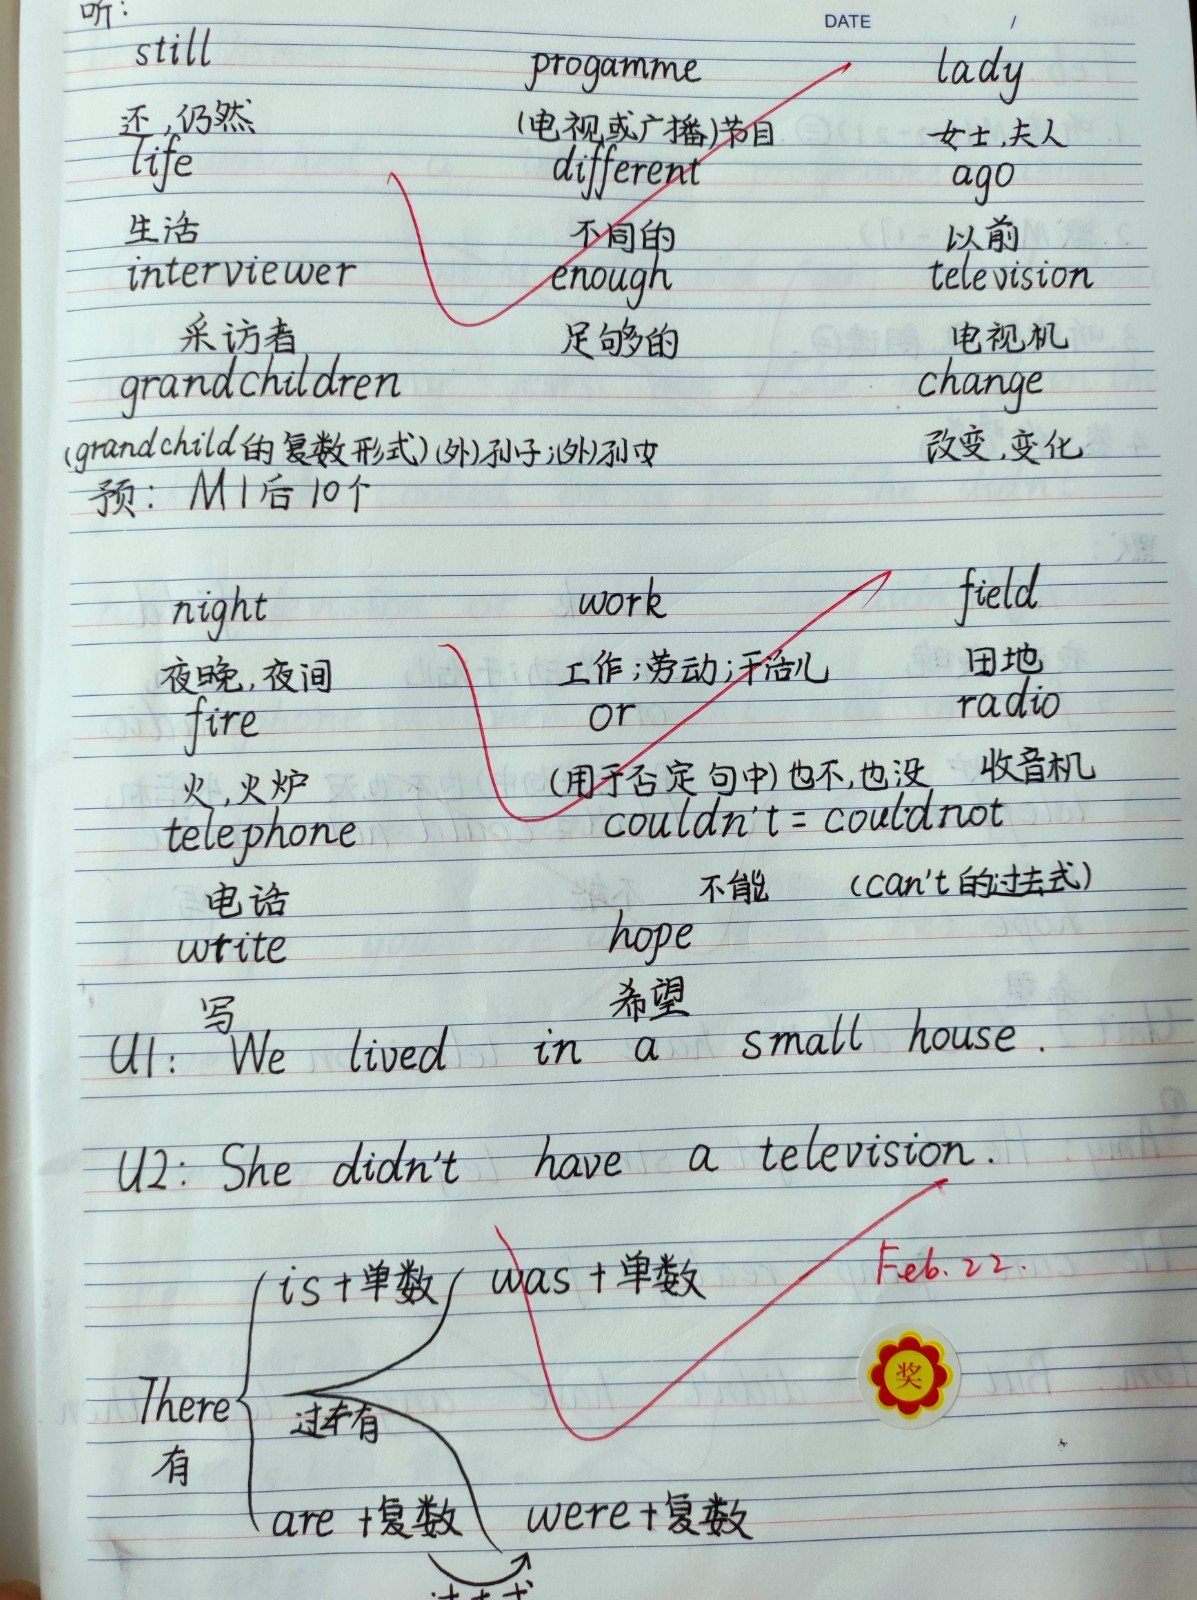 听:
DATE / /
still progamme lady
还,仍然 (电视或广播)节目 女士,夫人
life different ago
生活 不同的 以前
interviewer enough television
采访者 足够的 电视机
grandchildren change
(grandchild的复数形式)(外)孙子;(外)孙女 改变,变化
预: M1后10个
night work field
夜晚,夜间 工作;劳动;干活儿 田地
fire or radio
火,火炉 (用于否定句中)也不,也没 收音机
telephone couldn't = couldnot
电话 不能 (can't的过去式)
write hope
写 希望
U1: We lived in a small house.
U2: She didn't have a television.
Feb. 22.
is+单数 was+单数
奖
There 过去有
有
are+复数 were+复数